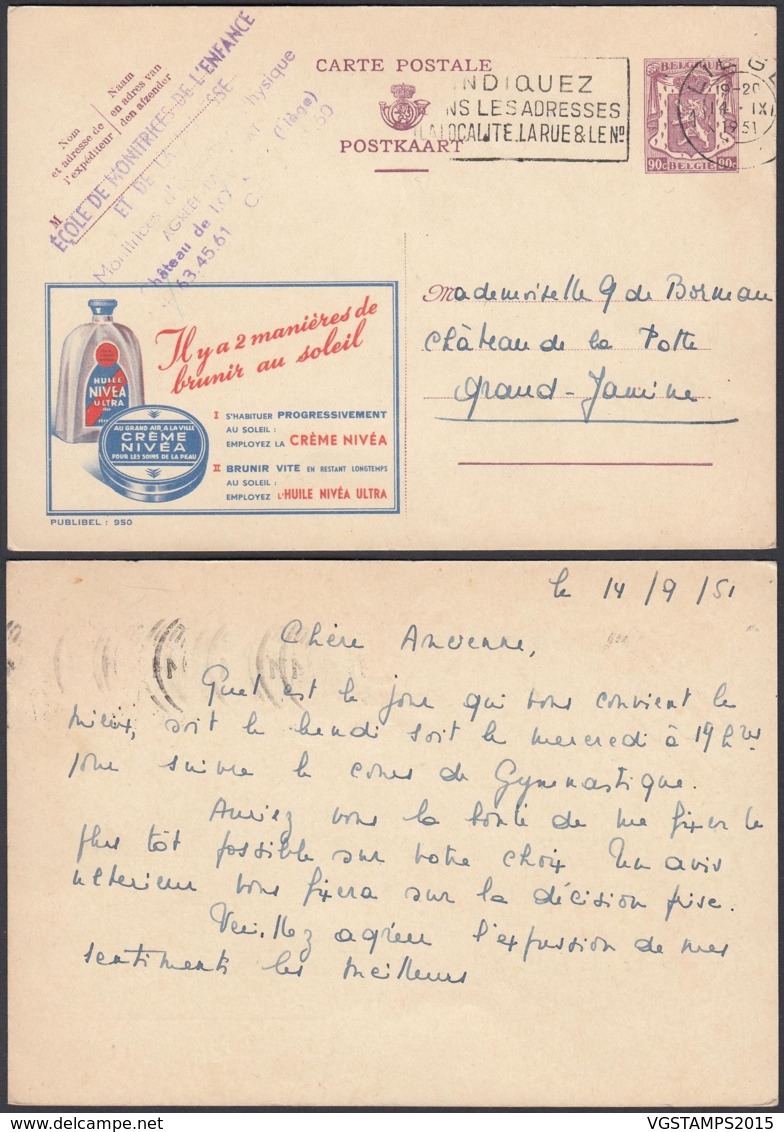 Nom
et adresse de
l'expéditeur
Naam
en adres van
den afzender
M
ÉCOLE DE MONITRICES DE L'ENFANCE
ET DE LA
physique
Monitrices d'
(Liège)
AGRÉÉ
Château de
63.45.61
CARTE POSTALE
POSTKAART
INDIQUEZ
NS LES ADRESSES
LA LOCALITE. LA RUE & LE No
BELGIQUE
90c 90c
BELGIE
19-20
14 -IX
1951
Il y a 2 manières de
brunir au soleil
HUILE
NIVEA
ULTRA
AU GRAND AIR, A LA VILLE
CRÈME
NIVÉA
POUR LES SOINS DE LA PEAU
I S'HABITUER PROGRESSIVEMENT
AU SOLEIL :
EMPLOYEZ LA CRÈME NIVÉA
II BRUNIR VITE EN RESTANT LONGTEMPS
AU SOLEIL :
EMPLOYEZ L'HUILE NIVÉA ULTRA
PUBLIBEL : 950
Mademoiselle G de Borman
Château de la Potte
Grand-Jamine
le 14/9/51
Chère Ancienne,
Quel est le jour qui vous convient le
mieux, soit le lundi soit le mercredi à 19 h
pour suivre le cours de Gymnastique.
Auriez vous la bonté de me fixer le
plus tôt possible sur votre choix Un avis
ultérieur vous fixera sur la décision prise.
Veuillez agréer l'expression de mes
sentiments les meilleurs
VGSTAMPS2015